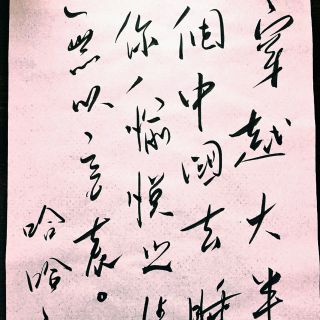 穿越大半
個中國去睡
你愉悅之情
無以言表。
哈哈